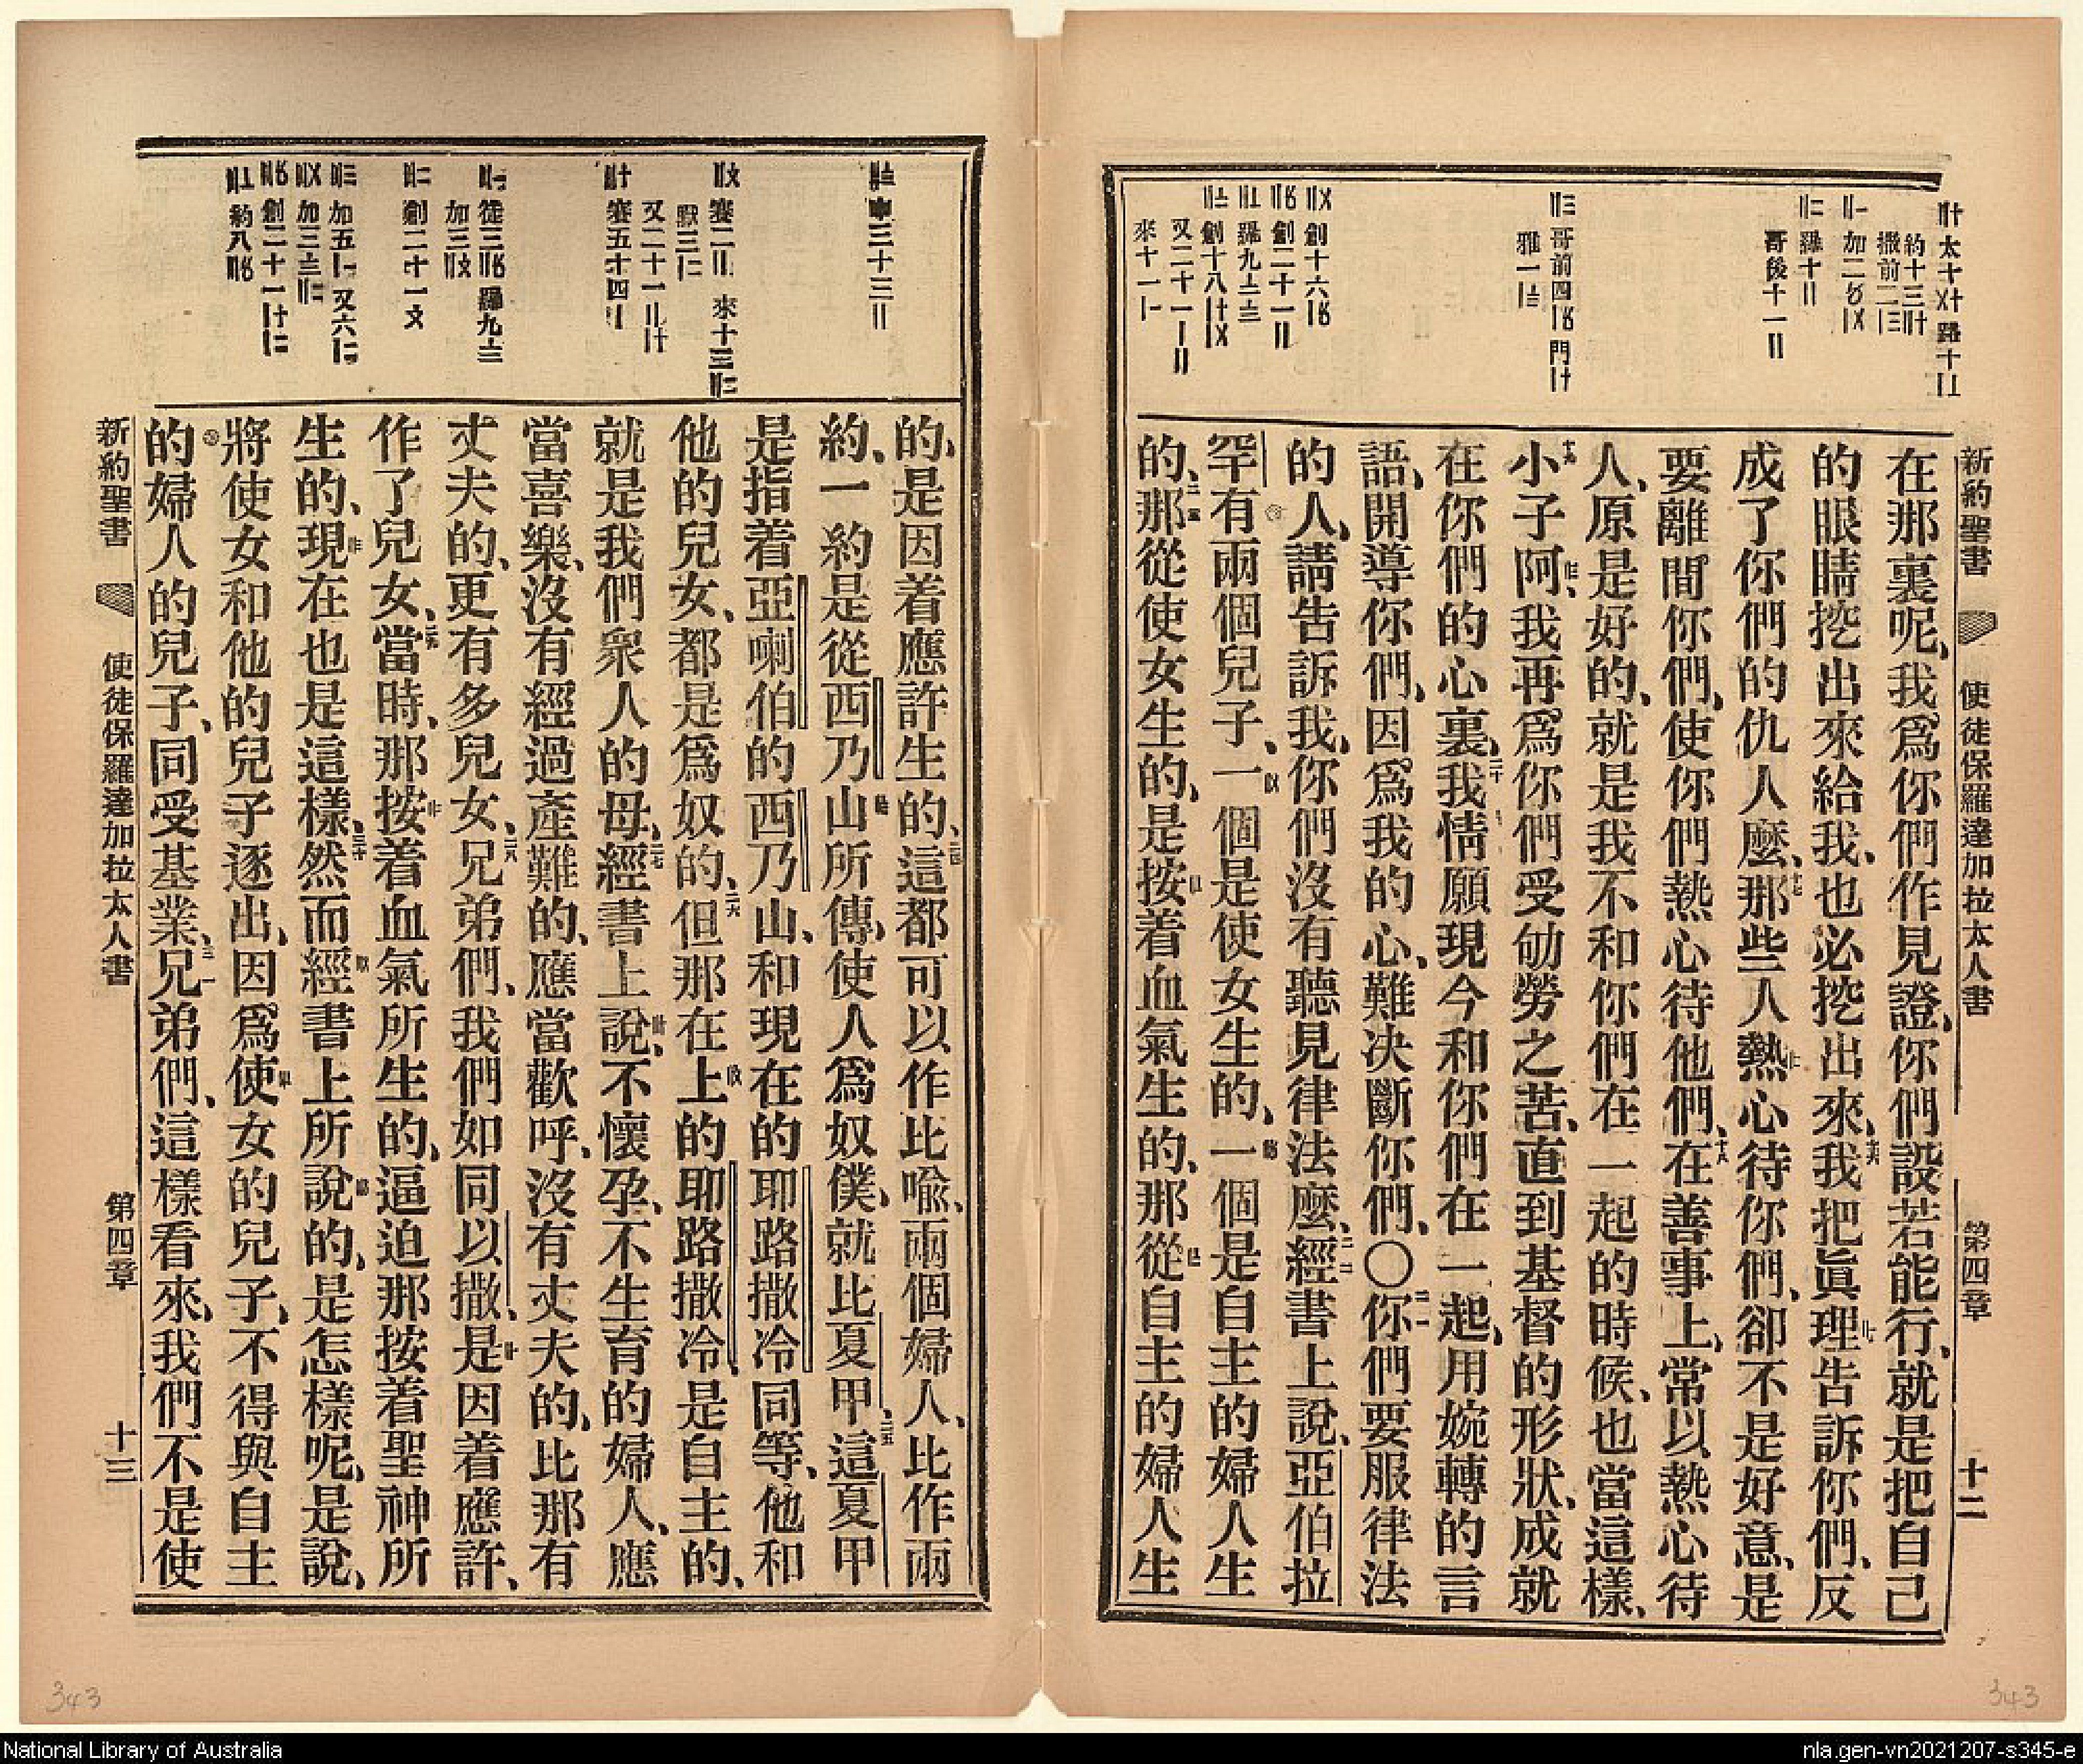 新約聖書 使徒保羅達加拉太人書 第四章 十二
在那裏呢、我爲你們作見證、你們設若能行、就是把自己
的眼睛挖出來給我、也必挖出來、十六我把眞理告訴你們、反
成了你們的仇人麽、十七那些人熱心待你們、卻不是好意、是
要離間你們、使你們熱心待他們、十八在善事上、常以熱心待
人、原是好的、就是我不和你們在一起的時候、也當這樣、
十九小子阿、我再爲你們受劬勞之苦、直到基督的形狀、成就
在你們的心裏、二十我情願現今和你們在一起、用婉轉的言
語、開導你們、因爲我的心、難決斷你們、〇二一你們要服律法
的人、請告訴我、你們沒有聽見律法麽、二二經書上說、亞伯拉
罕有兩個兒子、一個是使女生的、一個是自主的婦人生
的、二三那從使女生的、是按着血氣生的、那從自主的婦人生
的、是因着應許生的、二四這都可以作比喩、兩個婦人、比作兩
約、一約是從西乃山所傳、使人爲奴僕、就比夏甲、二五這夏甲
是指着亞喇伯的西乃山、和現在的耶路撒冷同等、他和
他的兒女、都是爲奴的、二六但那在上的耶路撒冷、是自主的、
就是我們衆人的母、二七經書上說、不懷孕、不生育的婦人、應
當喜樂、沒有經過產難的、應當歡呼、沒有丈夫的、比那有
丈夫的、更有多兒女、二八兄弟們、我們如同以撒、是因着應許、
作了兒女、二九當時、那按着血氣所生的、逼迫那按着聖神所
生的、現在也是這樣、三十然而經書上所說的、是怎樣呢、是說、
將使女和他的兒子逐出、因爲使女的兒子、不得與自主
的婦人的兒子、同受基業、三一兄弟們、這樣看來、我們不是使
新約聖書 使徒保羅達加拉太人書 第四章 十三
343
343
National Library of Australia
nla.gen-vn2021207-s345-e